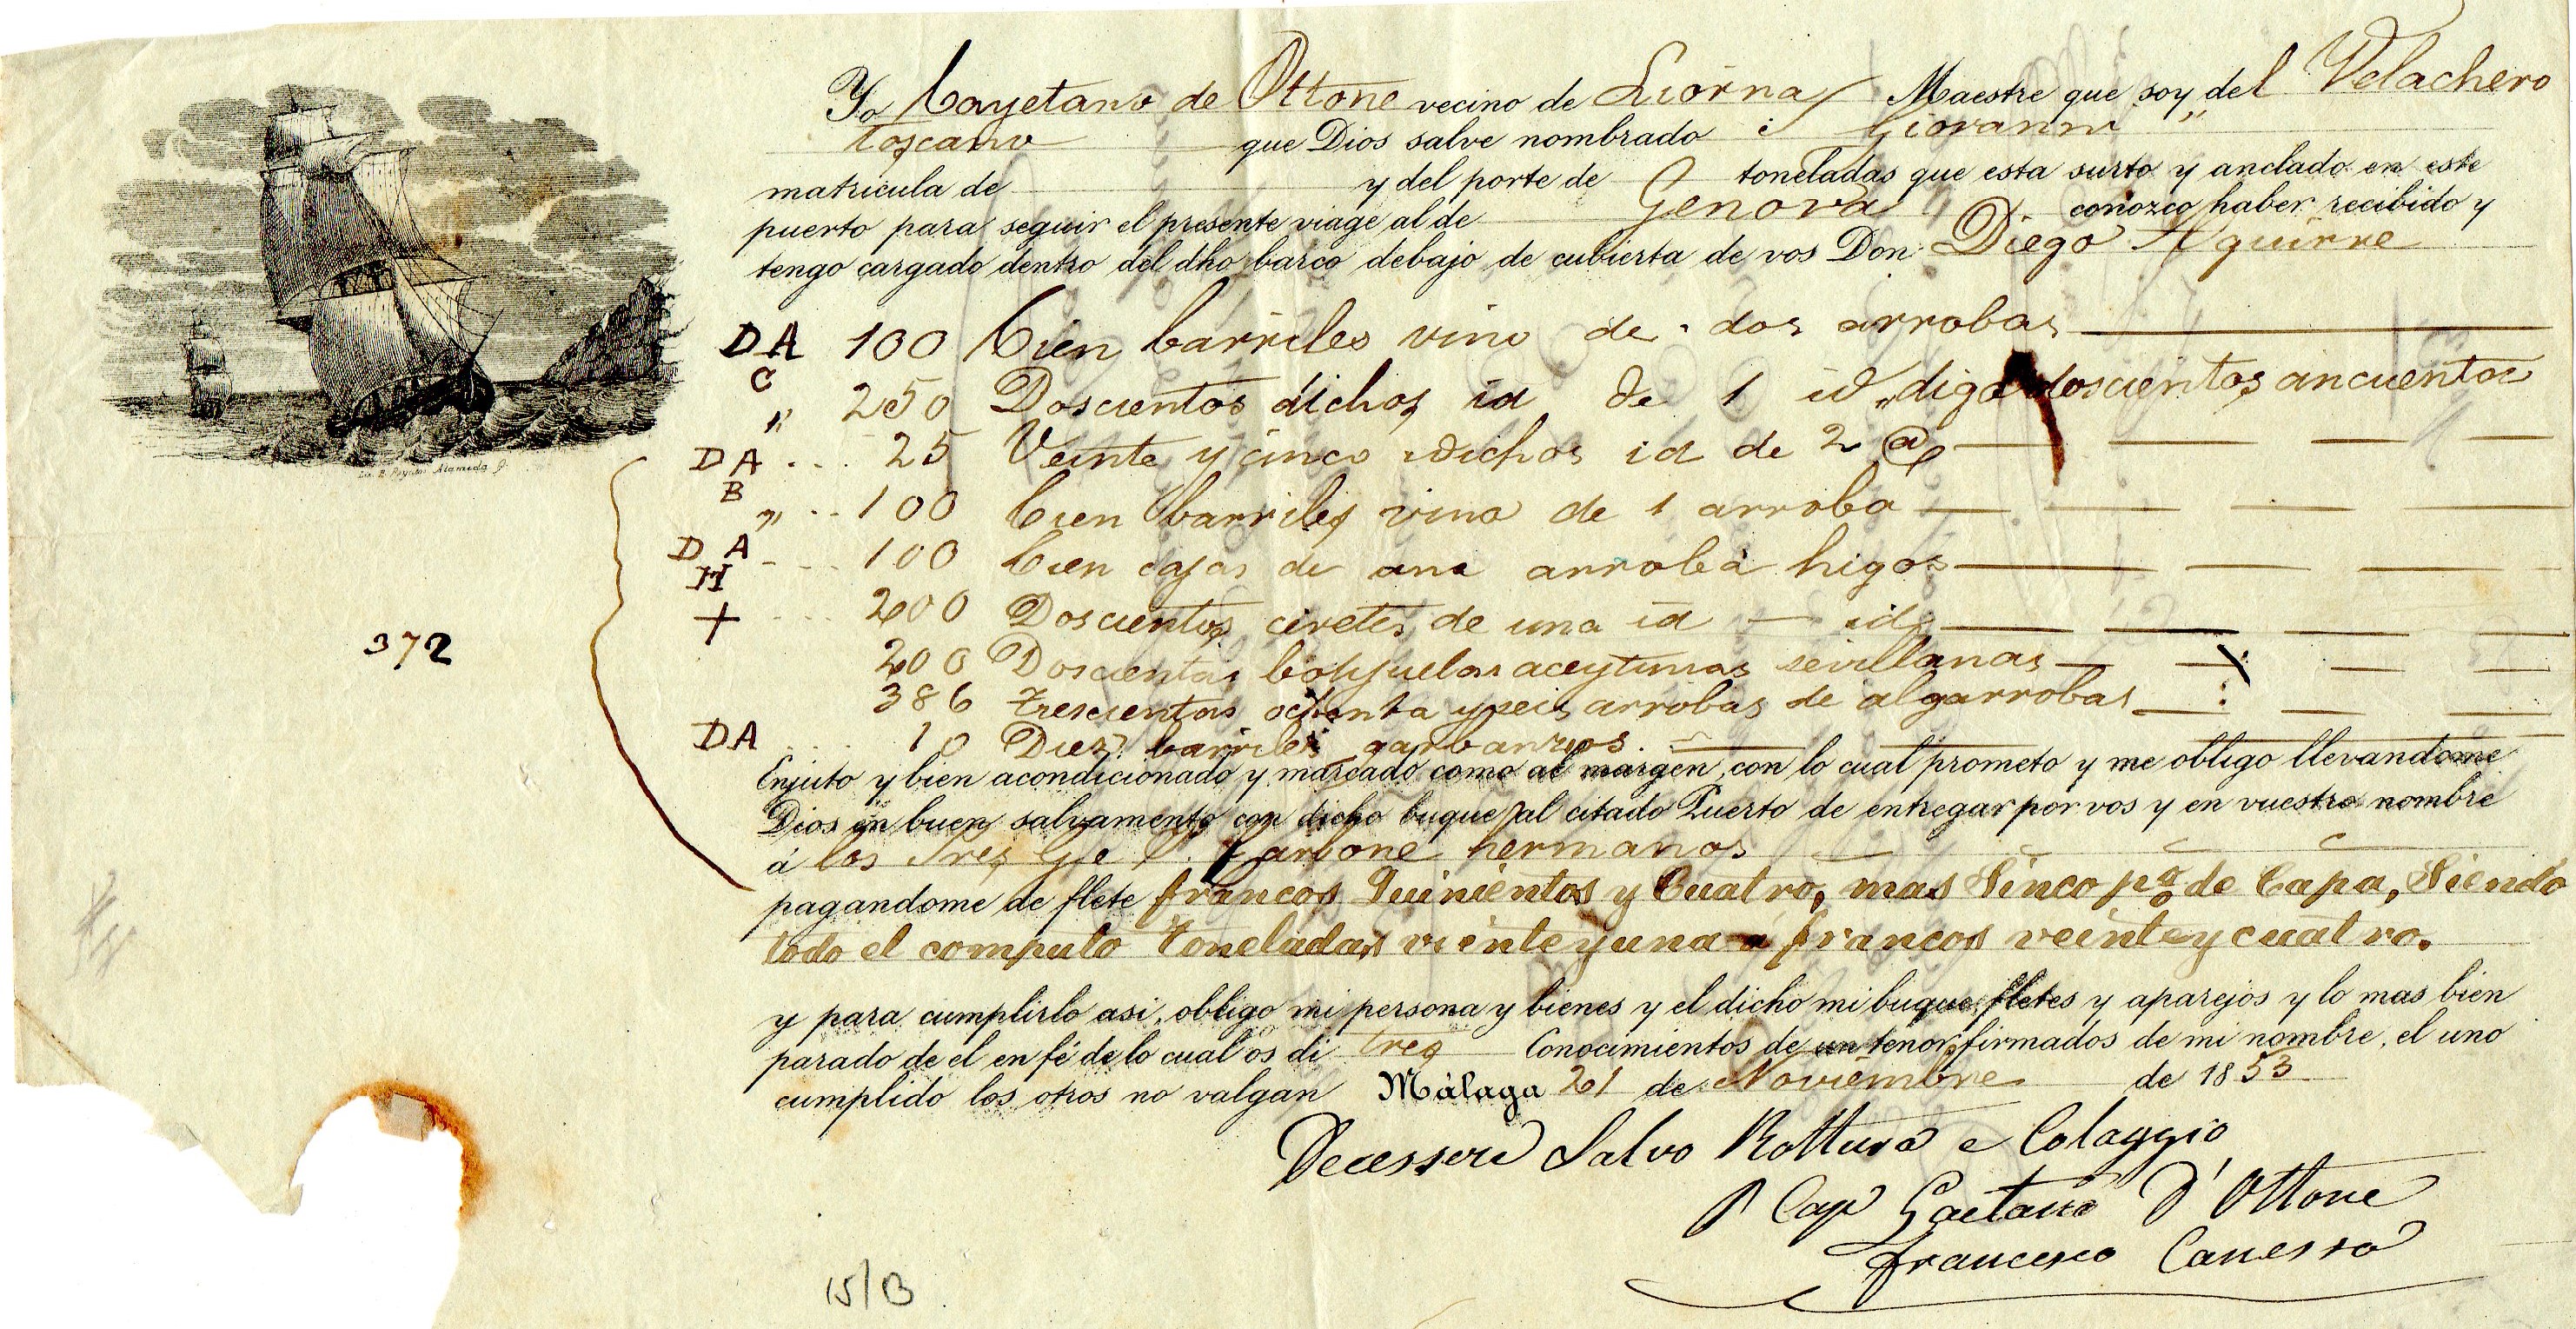 Yo Cayetano de Ottone vecino de Liorna Maestre que soy del Velachero
toscano que Dios salve nombrado Giovanni
matricula de y del porte de toneladas que esta surto y anclado en este
puerto para seguir el presente viage al de Genova conozco haber recibido y
tengo cargado dentro del dho barco debajo de cubierta de vos Don Diego Aguirre
DA 100 Cien barriles vino de dos arrobas
C
" 250 Doscientos dichos id de 1 id, digo doscientos cincuenta
DA 25 Veinte y cinco dichos id de 2 @
B
" 100 Cien barriles vino de 1 arroba
DA 100 Cien cajas de una arroba higos
H
+ 200 Doscientos ceretes de una id — id
200 Doscientas aceytunas sevillanas
386 Trescientas ochenta y seis arrobas de algarrobas
DA 10 Diez barriles garbanzos.
Enjuto y bien acondicionado y marcado como al margen, con lo cual prometo y me obligo llevandome
Dios en buen salvamento con dicho buque al citado Puerto de entregar por vos y en vuestro nombre
á los Sres hermanos
pagandome de flete francos Quinientos y Cuatro, mas Sinco p% de Capa, Siendo
todo el computo toneladas vienteyuna a francos veinteycuatro.
y para cumplirlo asi, obligo mi persona y bienes y el dicho mi buque fletes y aparejos y lo mas bien
parado de el en fé de lo cual os di tres Conocimientos de un tenor firmados de mi nombre, el uno
cumplido los otros no valgan Málaga 21 de Noviembre de 1853
372
Salvo Rottura e Colaggio
P Cap Gaetano D'Ottone
Francesco Canessa
15/B